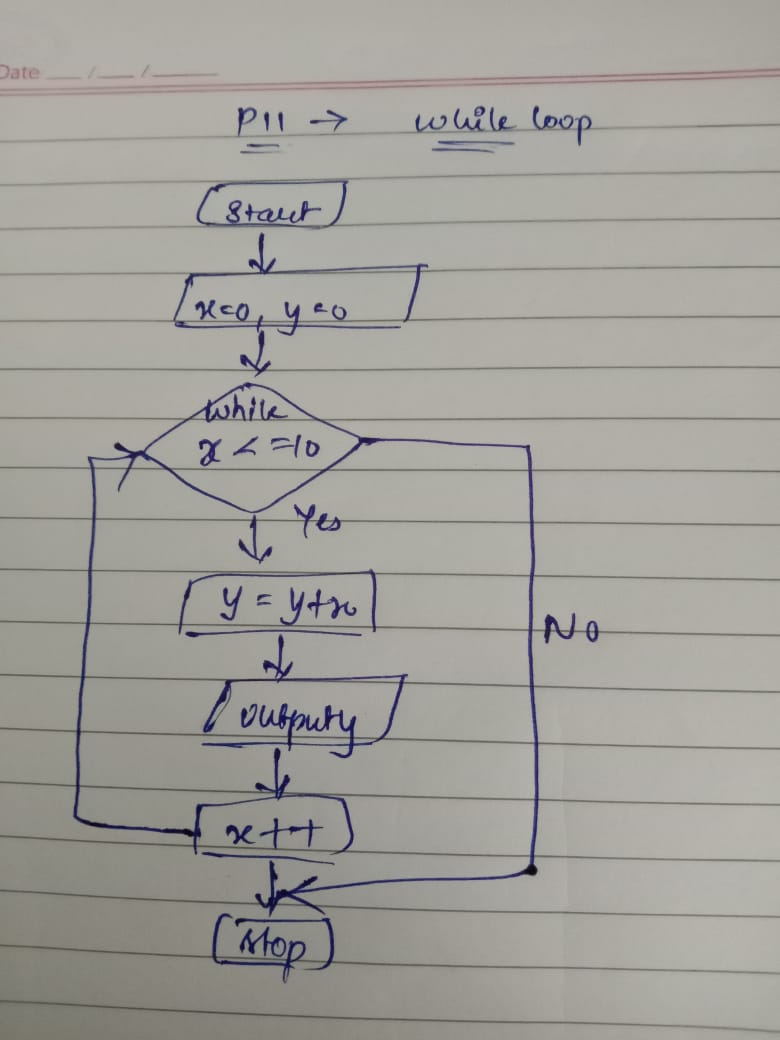 Date __/__/____
P11 → while loop
Start
x=0, y=0
while
x<=10
Yes
y = y+x
No
output y
x++
Stop